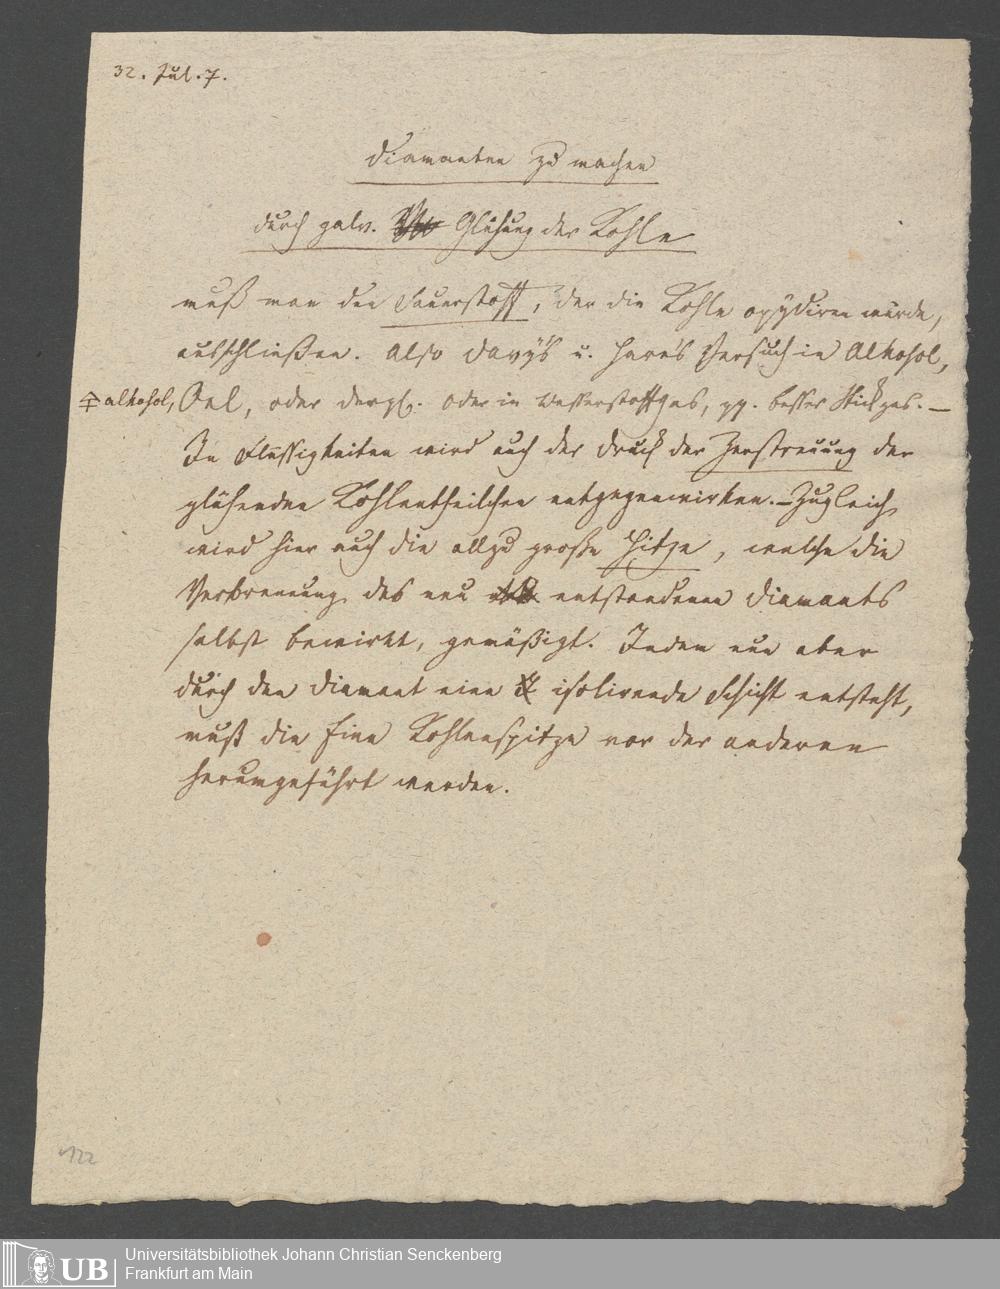 32. Jul. 7.
Diamanten zu machen
durch galv. Glühung der Kohle
muß man den Sauerstoff, der die Kohle oxydiren würde,
ausschließen. Also Davy's u. Hare's Versuch in Alkohol,
alkohol, Oel, oder dergl. oder in Wasserstoffgas, pp. besser Stickgas. —
In Flüssigkeiten wird auch der Druck der Zerstreuung der
glühenden Kohlentheilchen entgegenwirken. – Zugleich
wird hier auch die allzu große Hitze, welche die
Verbrennung des neu entstandenen Diamants
selbst bewirkt, gemäßigt. Indem nun aber
durch den Diamant eine isolirende Schicht entsteht,
muß die Eine Kohlenspitze vor der anderen
herumgeführt werden.
122
UB
Universitätsbibliothek Johann Christian Senckenberg
Frankfurt am Main